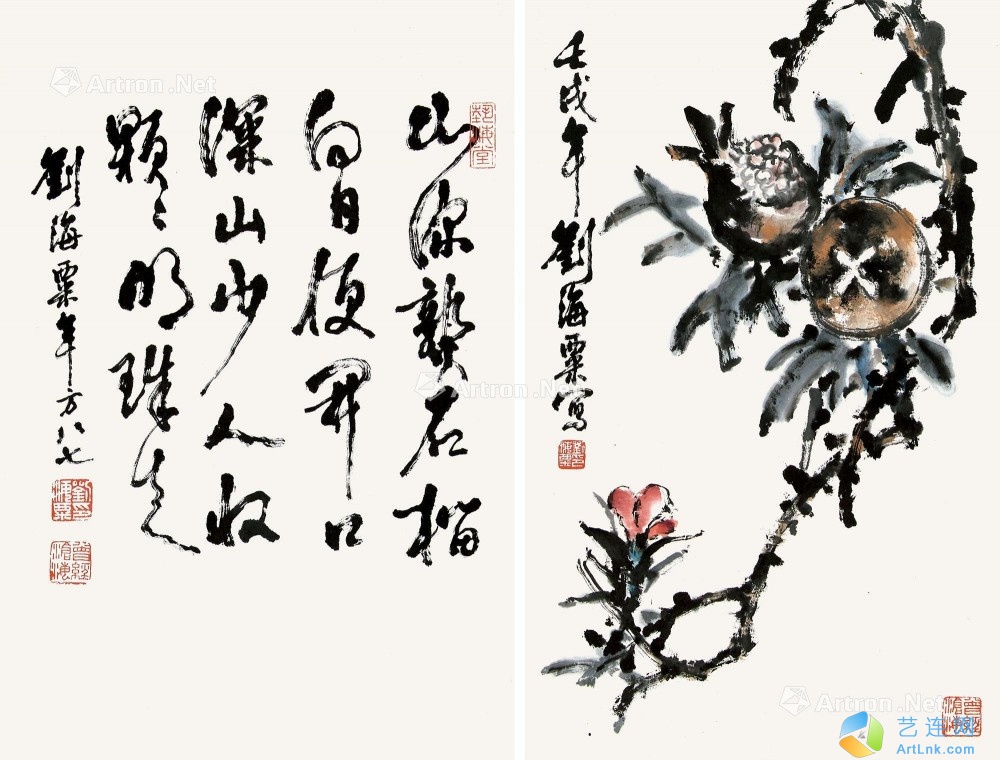 山深熟石榴
向日便開口
深山少人收
顆々明珠走
劉海粟年方八七
曾經滄海
壬戌年劉海粟寫
曾經滄海
Artron.Net
Artron.Net
Artron.Net
艺连网
ArtLnk.com